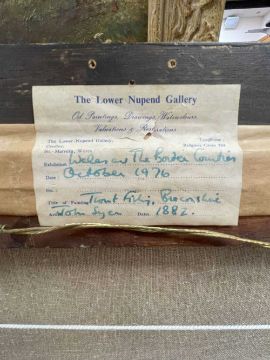 The Lower Nupend Gallery
Oil Paintings, Drawings, Watercolours,
Valuations & Restorations
The Lower Nupend Gallery, Telephone
Cradley,
Nr. Malvern, Worcs
Exhibition Wales and The Border Counties
Date October 1976
No.
Title of Painting Trout Fishing, Breconshire
Artist John Syer Date: 1882.